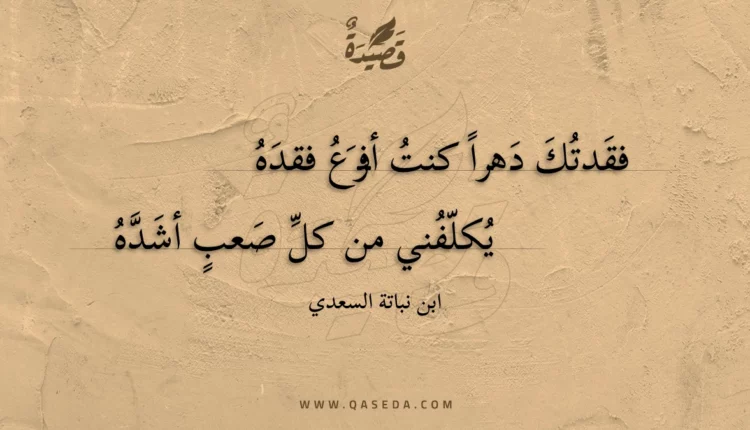 قَصِيْدَةٌ
فقَدتُكَ دَهراً كنتُ أفزَعُ فقدَهُ
يُكلّفُني من كلِّ صَعبٍ أشَدَّهُ
ابن نباتة السعدي
WWW.QASEDA.COM